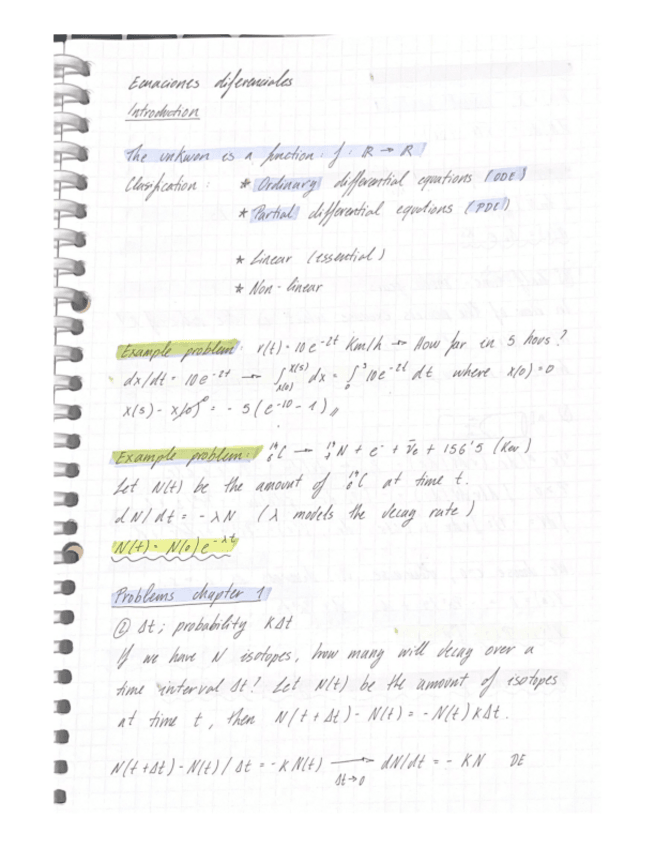 Ecuaciones diferenciales
Introduction
The unkwon is a function: f: ℝ → ℝ
Clasification: * Ordinary differential equations (ODE)
* Partial differential equations (PDE)
* Linear (essential)
* Non-linear
Example problem: v(t) = 10e^-2t Km/h → How far in 5 hours?
dx/dt = 10e^-2t → ∫_x(0)^x(5) dx = ∫_0^5 10e^-2t dt where x(0)=0
x(5) - x(0)^0 = -5(e^-10 - 1)//
Example problem: ^14_6 C → ^14_7 N + e^- + ν̄e + 156'5 (Kev)
Let N(t) be the amount of ^14_6 C at time t.
dN/dt = -λN (λ models the decay rate)
N(t) = N(0)e^-λt
Problems chapter 1
② Δt; probability KΔt
If we have N isotopes, how many will decay over a
time interval Δt? Let N(t) be the amount of isotopes
at time t, then N(t+Δt) - N(t) = -N(t)KΔt.
N(t+Δt) - N(t) / Δt = -KN(t) → dN/dt = -KN DE
Δt→0